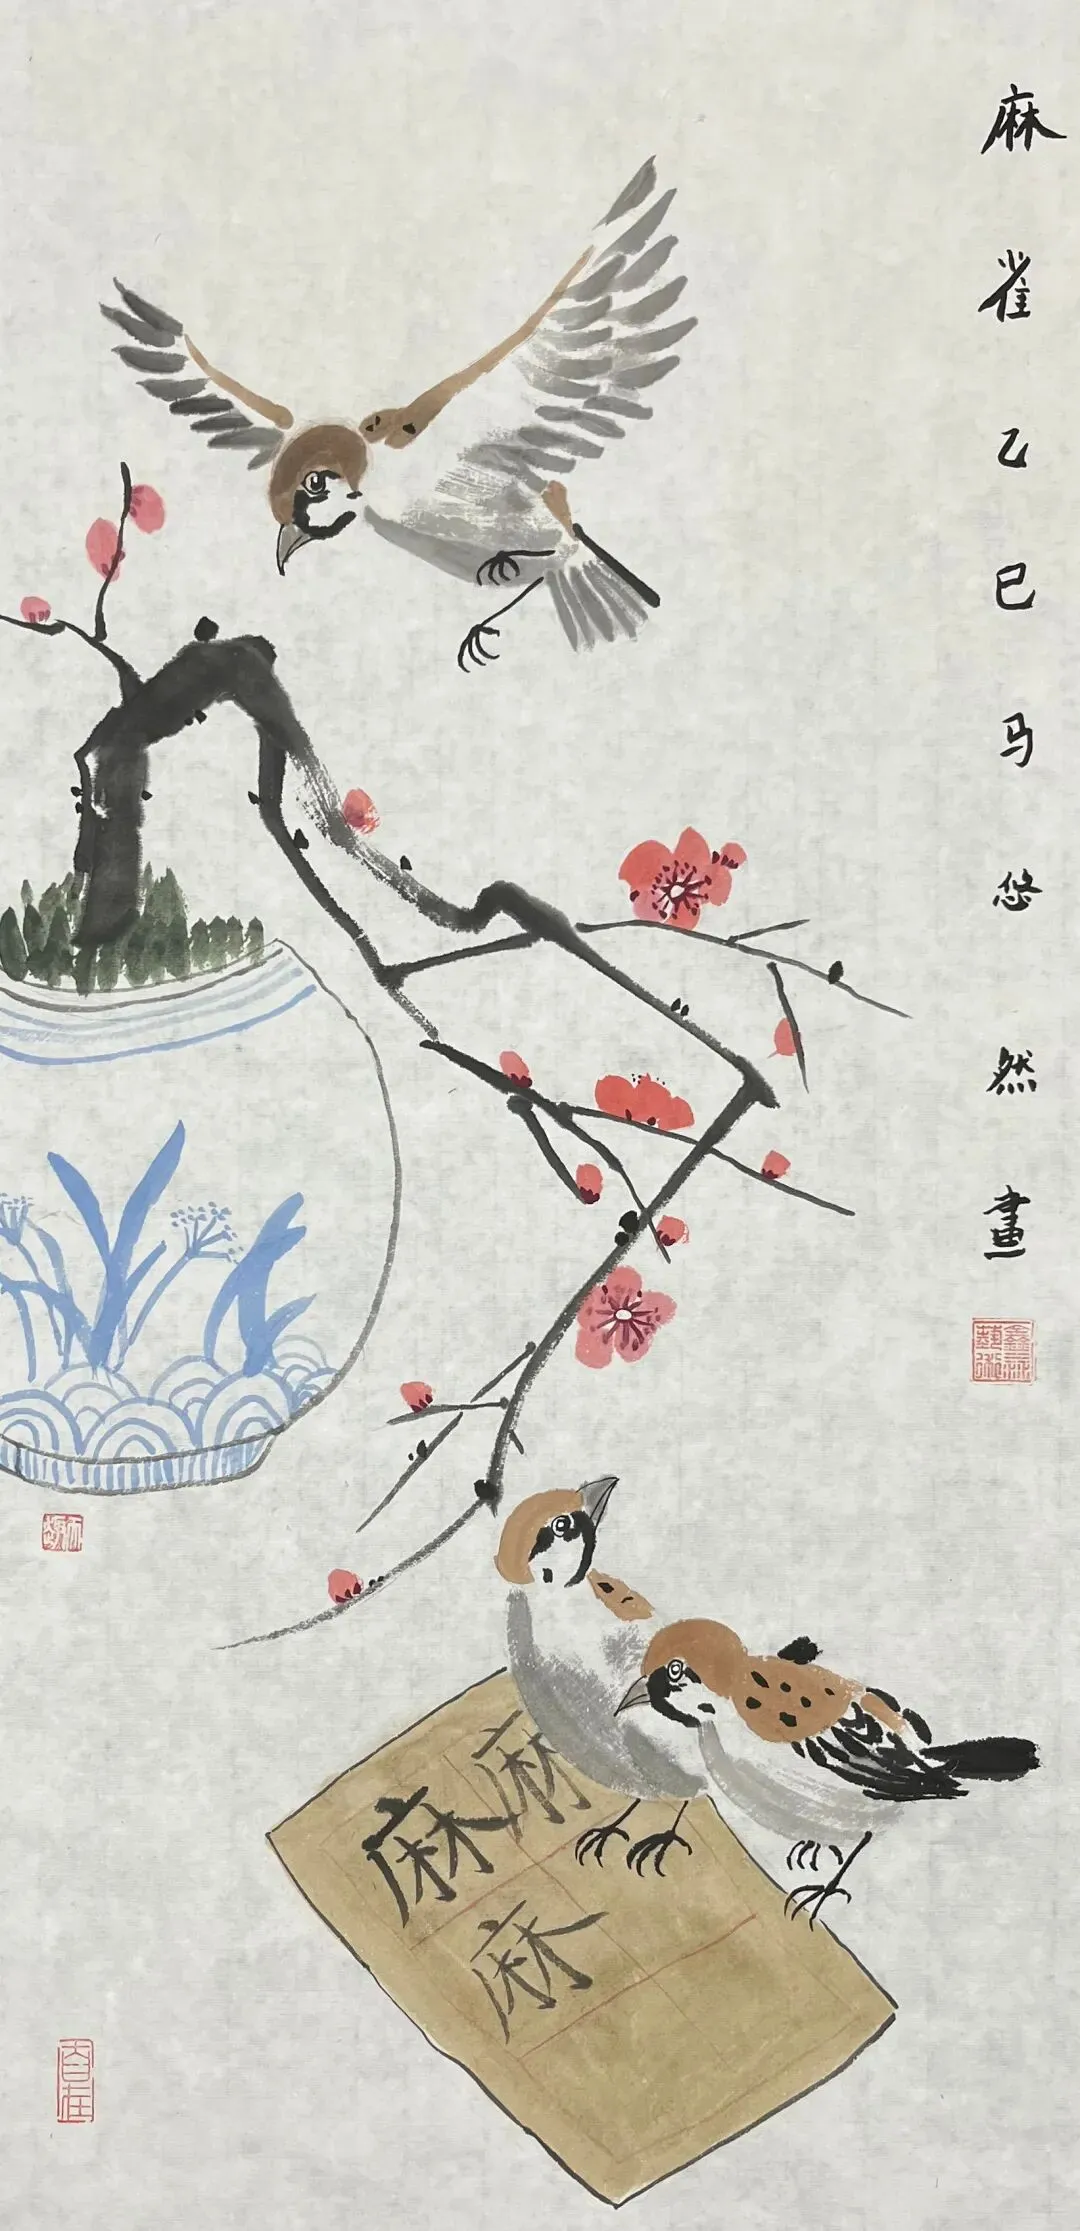 麻雀乙巳马悠然畫
麻麻
麻